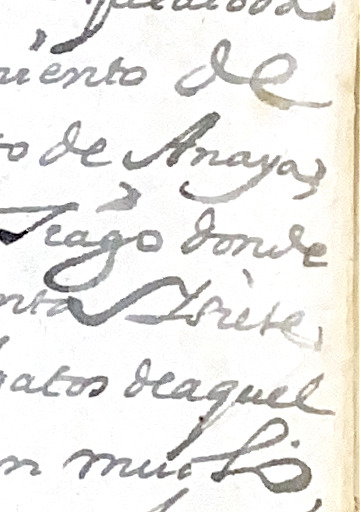 miento de
to de Anaya,
Tiago donde
nta y siete,
gatos deaquel
n muchis